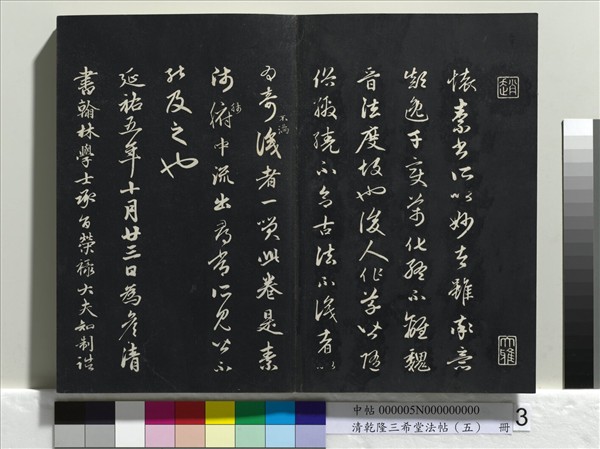 趙
懷素書所以妙者雖率意
顛逸千變萬化終不離魏
晉法度故也後人作草皆隨
俗繳繞不合古法不識者以
為奇不滿識者一笑此卷是素
師肺腑中流出尋常所見皆不
能及之也
延祐五年十月廿三日為彥清
書翰林學士承旨榮祿大夫知制誥
大雅
中帖 000005N000000000
清乾隆三希堂法帖（五） 冊
3